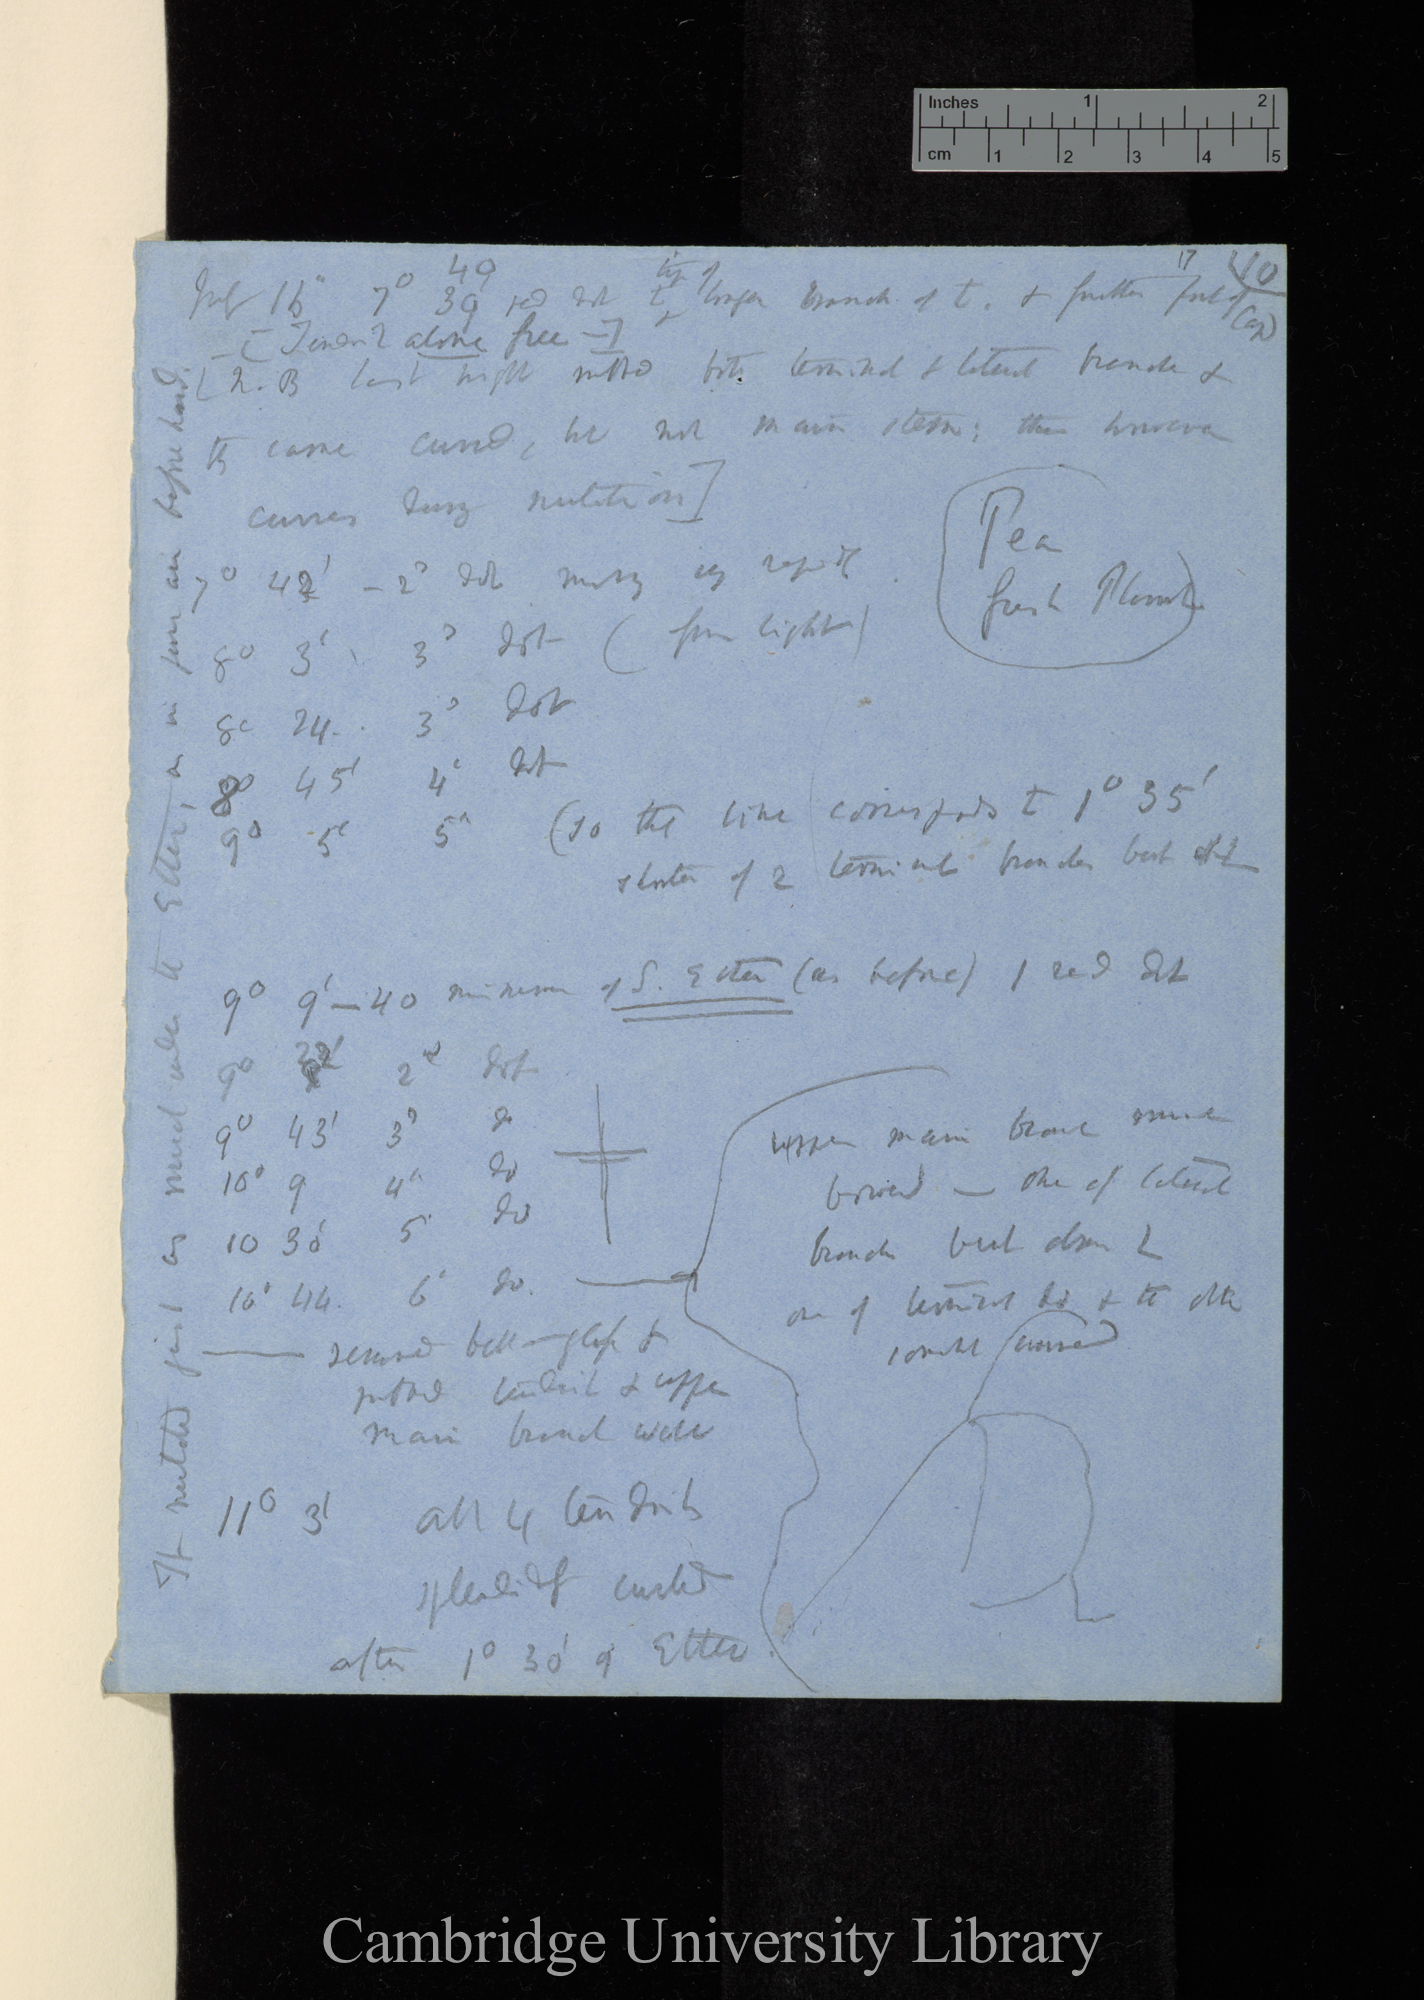 Inches 1 2
cm 1 2 3 4 5
17 40
July 16" 7° 39 49 red dot tip of longer branch of t. & further part of Cap
— [Tendril alone free —]
[N.B last night rubbed both terminal & lateral branch &
they came curved, but not main stem; this however
curves during nutation]
7° 42' — 2d dot moving very rapidly
Pea
fresh Plant
8° 3' 3d dot (from light)
8° 24. 3d dot
8° 45' 4' dot
9° 5' 5" (so the line corresponds to 1° 35'
shorter of 2 terminal branches bent
9° 9' — 40 minims of S. Ether (as before) 1 red dot
9° 2d dot
9° 43' 3d do
10° 9 4" do
10 30' 5 do
10° 44. 6' do.
upper main branch
bowed — one of lateral
branches bent above L
one of terminal do & the other
curved
removed bell-glass &
rubbed tendril & upper
main branch well
11° 3' all 4 tendrils
splendidly curled
after 1° 30' of Ether.
It nutated just as much under the Ether, as in pure air before hand.
Cambridge University Library